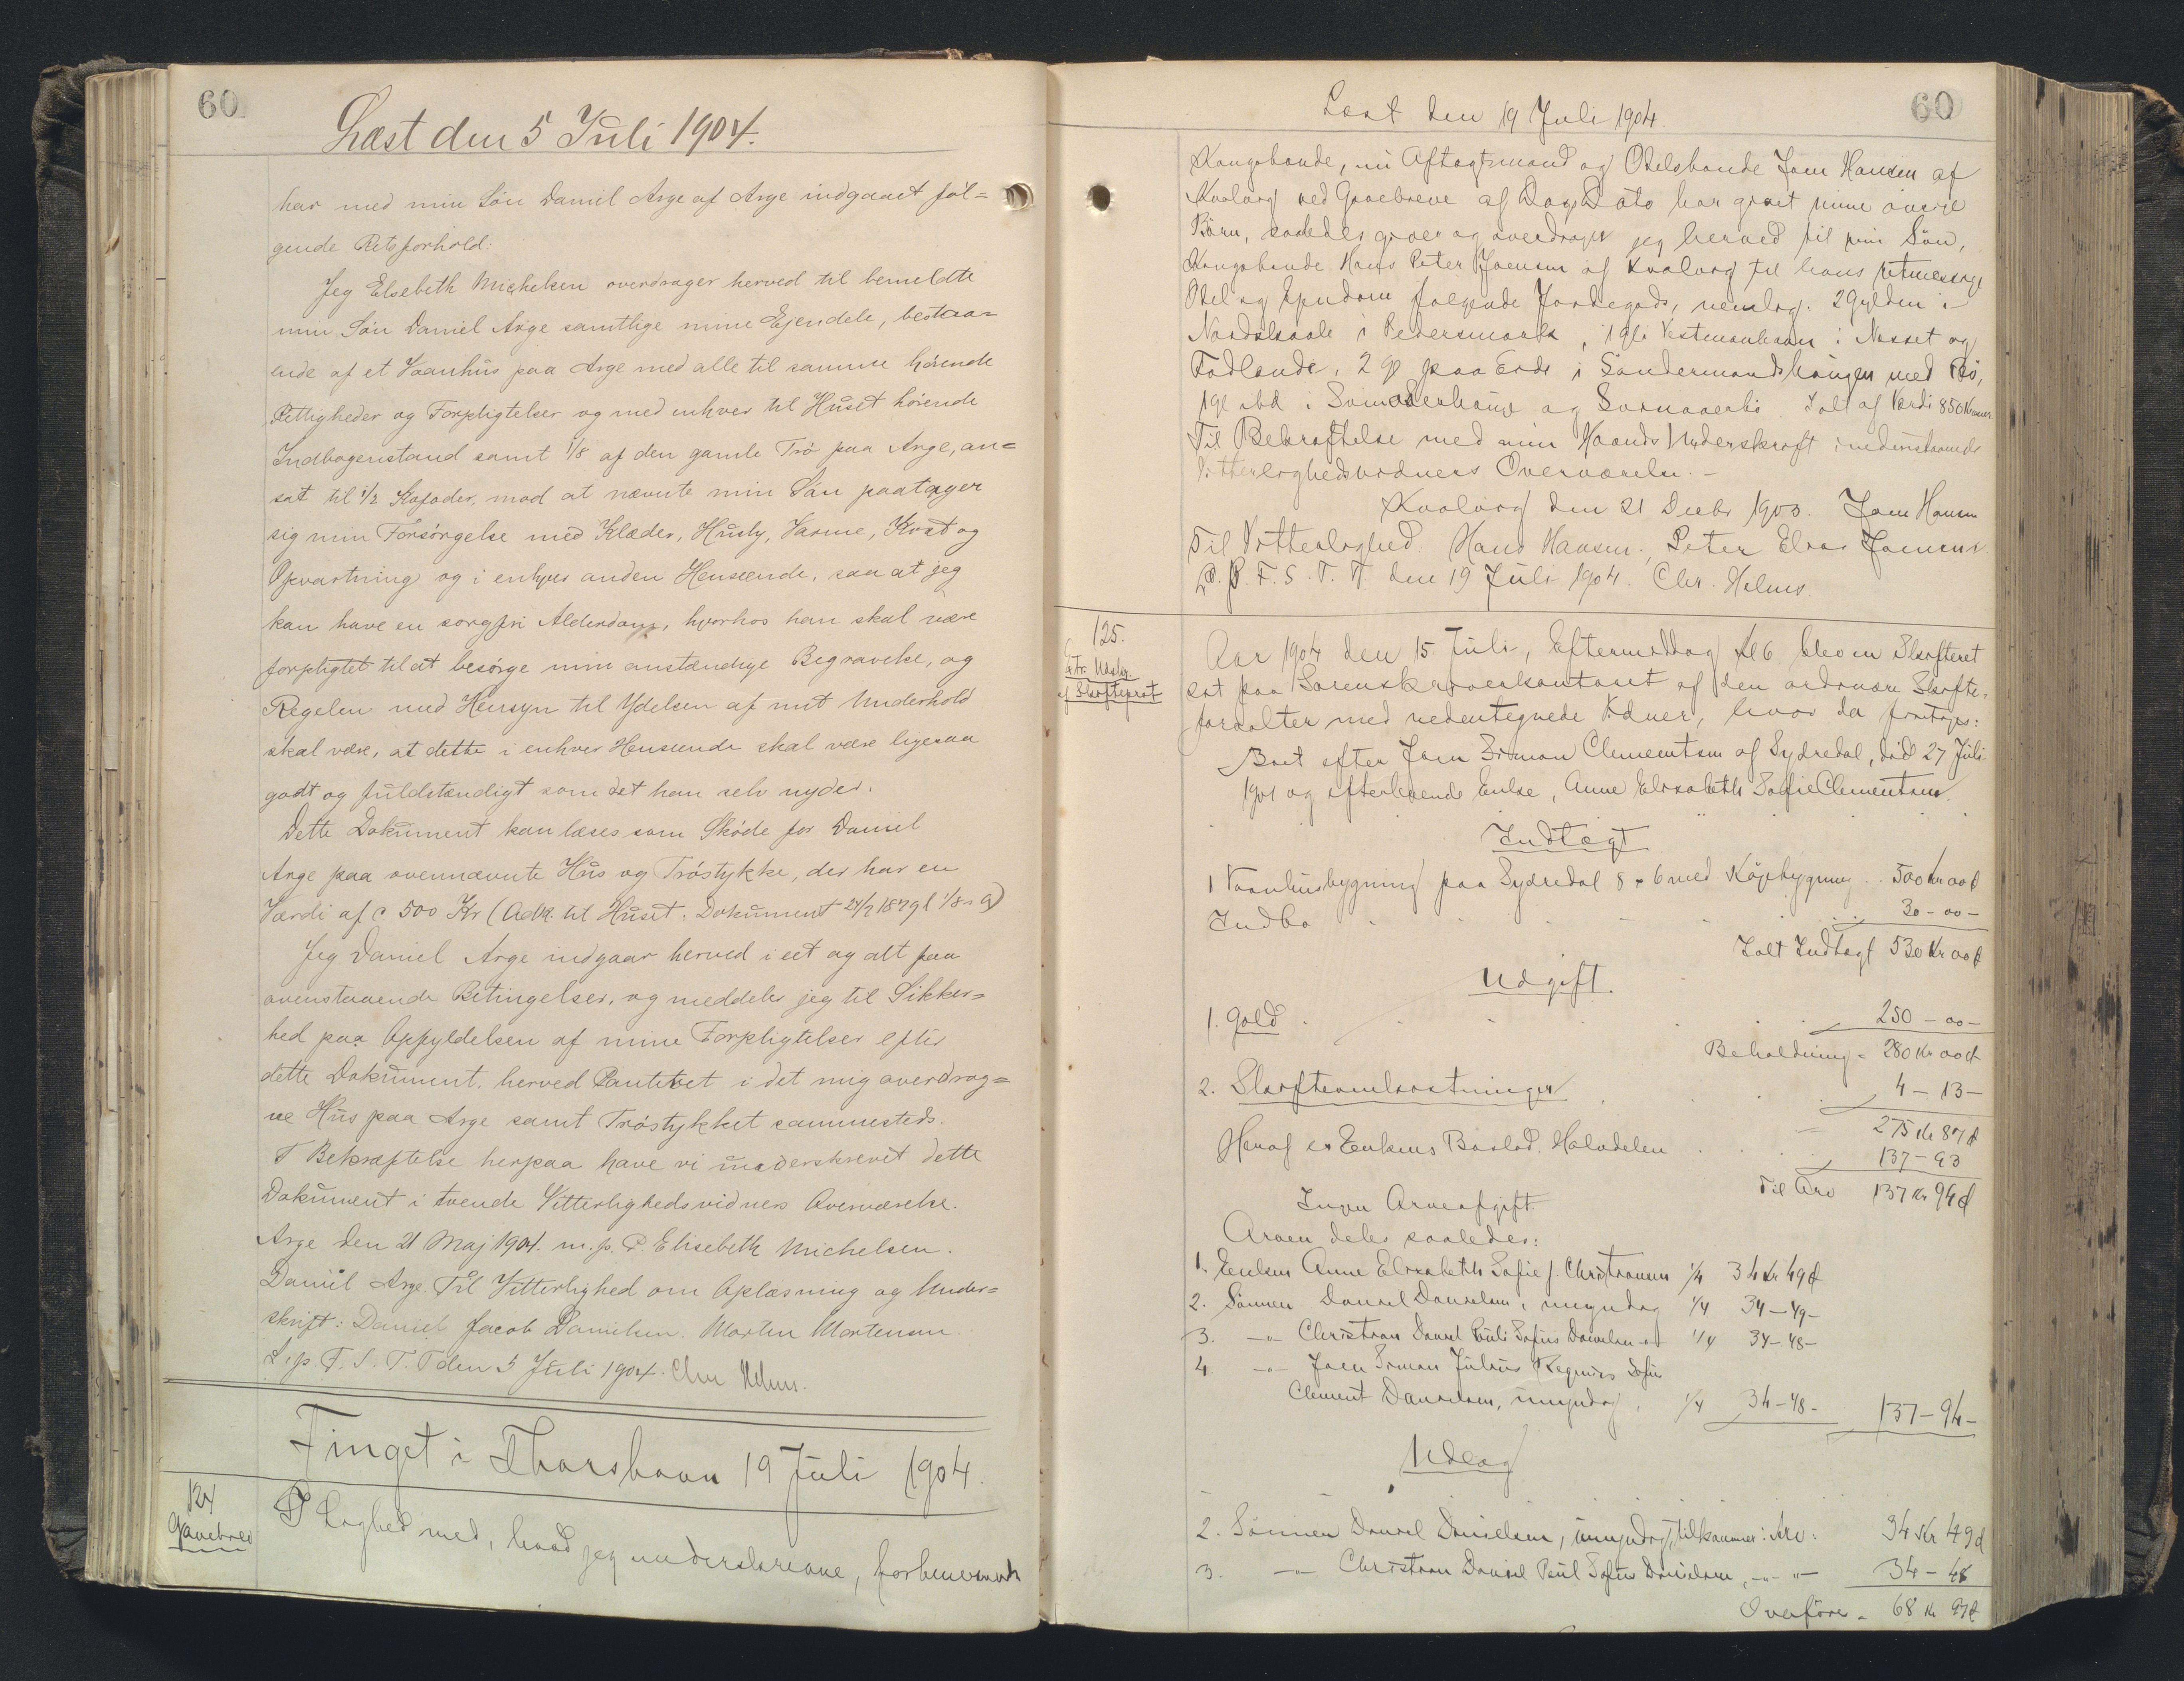 60
Læst den 5 Juli 1904.
har med min Søn Daniel Arge af Arge indgaaet føl=
gende Retsforhold:
Jeg Elsebeth Michelsen overdrager herved til bemeldte
min Søn Daniel Arge samtlige mine Ejendele, bestaa=
ende af et Vaanhus paa Arge med alle til samme hørende
Rettigheder og Forpligtelser og med enhver til Huset hørende
Indbogenstand samt 1/8 af den gamle Trø paa Arge, an=
sat til 1/2 Kofoder, mod at nævnte min Søn paatager
sig min Forsørgelse med Klæder, Husly, Varme, Kost og
Opvartning og i enhver anden Henseende, saa at jeg
kan have en sorgfri Alderdom, hvorhos han skal være
forpligtet til at besørge min anstændige Begravelse, og
Regelen med Hensyn til Ydelsen af mit Underhold
skal være, at dette i enhver Henseende skal være ligesaa
godt og fuldstændigt som det han selv nyder.
Dette Dokument kan læses som Skøde for Daniel
Arge paa ovennævnte Hus og Trøstykke, der har en
Værdi af c. 500 Kr (Adk. til Huset: Dokument 24/7 1879
Jeg Daniel Arge indgaar herved i eet og alt paa
ovenstaaende Betingelser, og meddeler jeg til Sikker=
hed paa Opfyldelsen af mine Forpligtelser efter
dette Dokument, herved Panteret i det mig overdrag=
ne Hus paa Arge samt Trøstykket sammesteds.
T Bekræftelse herpaa have vi underskrevet dette
Dokument i tvende Vitterlighedsvidners Overværelse.
Arge den 21 Maj 1904. m. p. P. Elisebeth Michelsen.
Daniel Arge. Til Vitterlighed om Oplæsning og Under=
skrift: Daniel Jacob Danielsen. Morten Mortensen.
L. p. F. S. T. T den 5 Juli 1904. Chr Helms.
Tinget i Thorshavn 19 Juli 1904.
124
Gavebrev
I Lighed med, hvad jeg underskrevne, forhenværende
60
Læst den 19 Juli 1904
Kongsbonde, nu Aftægtsmand og Odelsbonde Joen Hansen af
Kvalvig ved Gavebreve af Dags Dato har givet mine øvrige
Børn, saaledes giver og overdrager jeg herved til min Søn,
Kongsbonde Hans Peter Joensen af Kvalvig til hans retmæssige
Odel og Ejendom følgende Jordegods, nemlig: 2 Gylden i
Nordskaale i Pedersmark, 1 gl i Vestmanhavn i Nesset og
Fodlende, 2 gl paa Eide i Søndermandshaugen med Trø,
1 gl ibd i og Ialt af Værdi 850 Kroner
Til Bekræftelse med min Haands Underskrift i nedenstaaende
Vitterlighedsvidners Overværelse. –
Kvalvig den 21 Decbr 1903. Joen Hansen
Til Vitterlighed. Hans Hansen., Peter Elias Joensen.
L. p. F. S. T. T. den 19 Juli 1904. Chr. Helms.
125.
Extr. Udskr.
af Skifteprot
Aar 1904 den 15. Juli, Eftermiddag Kl 6 blev en Skifteret
sat paa Sorenskriverkontoret af den ordinære Skifte=
forvalter med nedentegnede Vidner, hvor da foretoges:
Boet efter Joen Simon Clementsen af Sydredal, død 27 Juli
1901 og efterlevende Enke, Anne Elisabeth Sofie Clementsen.
Indtægt
1 Vaanhusbygning paa Sydredal 8 × 6 med Köjebygning . . 500 Kr 00 d
Indbo 30 – 00 –
Ialt Indtægt 530 Kr 00 d
Udgift.
1. Gæld 250 – 00 –
Beholdning = 280 Kr 00 d
2. Skifteomkostninger 4 – 13 –
275 Kr 87 d
Heraf er Enkens Boslod Halvdelen 137 – 93
Til Arv 137 Kr 94 d
Ingen Arveafgift
Arven deles saaledes:
1. Enken Anne Elisabeth Sofie f. Christiansen 1/4 34 Kr 49 d
2. Sønnen Daniel Danielsen, umyndig 1/4 34 – 49 –
3. –"– Christian Daniel Pauli Sofus Danielsen –"– 1/4 34 – 48 –
4. –"– Joen Simon Julius Regnius Sofus
Clement Danielsen, umyndig, 1/4 34 – 48 – 137 – 94 –
Udlæg
2. Sønnen Daniel Danielsen, umyndig, tilkommer: Arv: 34 Kr 49 d
3. –"– Christian Daniel Paul Sofus Danielsen, –"– "– 34 – 48
Overføres = 68 Kr 97 d